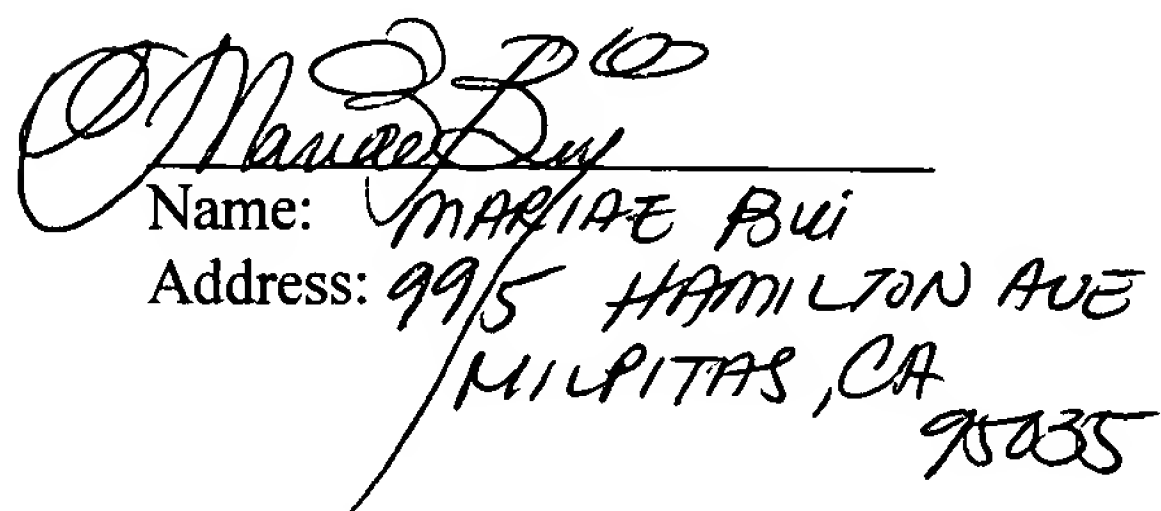 Mariae Bui
Name: MARIAE Bui
Address: 995 HAMILTON AVE
MILPITAS, CA
95035